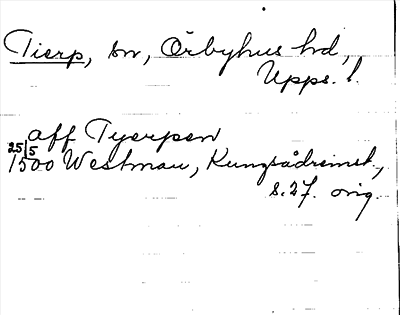 Tierp, sn, Örbyhus hd,
Upps. l.
aff Tyerpen
25/5 1500 Westman, Kungsådreinst.,
s. 27. orig.